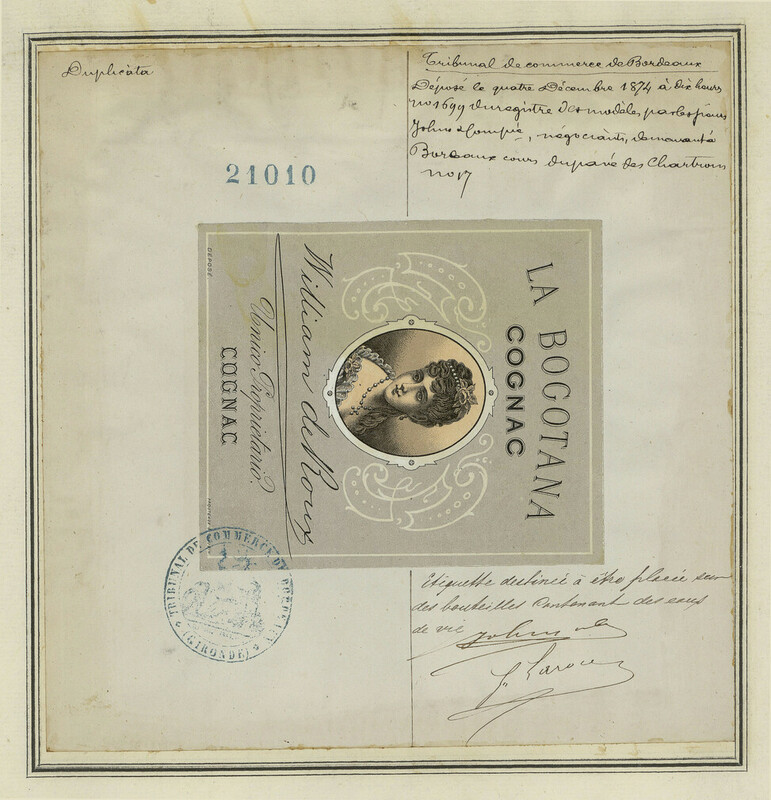 Duplicata
Tribunal de commerce de Bordeaux
Déposé le quatre Décembre 1874 à dix heures
no 1699 du registre des modèles par les sieurs
Johns & Compie, négociants, demeurant à
Bordeaux cours du pavé des Chartrons
no 17
21010
LA BOGOTANA
COGNAC
William de Roux
Unico Proprietario.
COGNAC
DÉPOSÉ
TRIBUNAL DE COMMERCE DE BORDEAUX
(GIRONDE)
Etiquette destinée à être placée sur
des bouteilles contenant des eaux
de vie
Johns